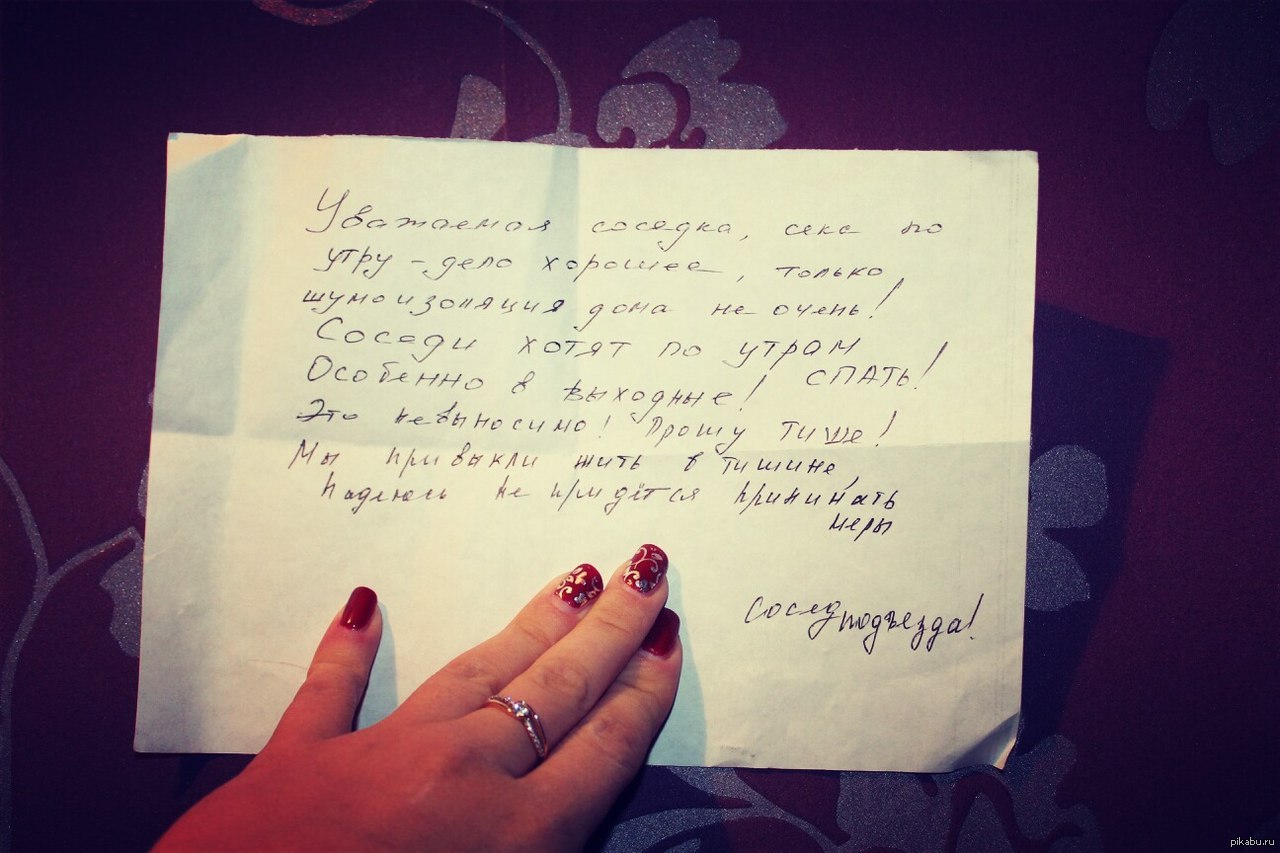 Уважаемая соседка, секс по
утру - дело хорошее, только
шумоизоляция дома не очень!
Соседи хотят по утрам
СПАТЬ!
Особенно в выходные!
Это невыносимо! Прошу тише!
Мы привыкли жить в тишине,
Надеюсь не придётся принимать
меры
Сосед подъезда!
pikabu.ru